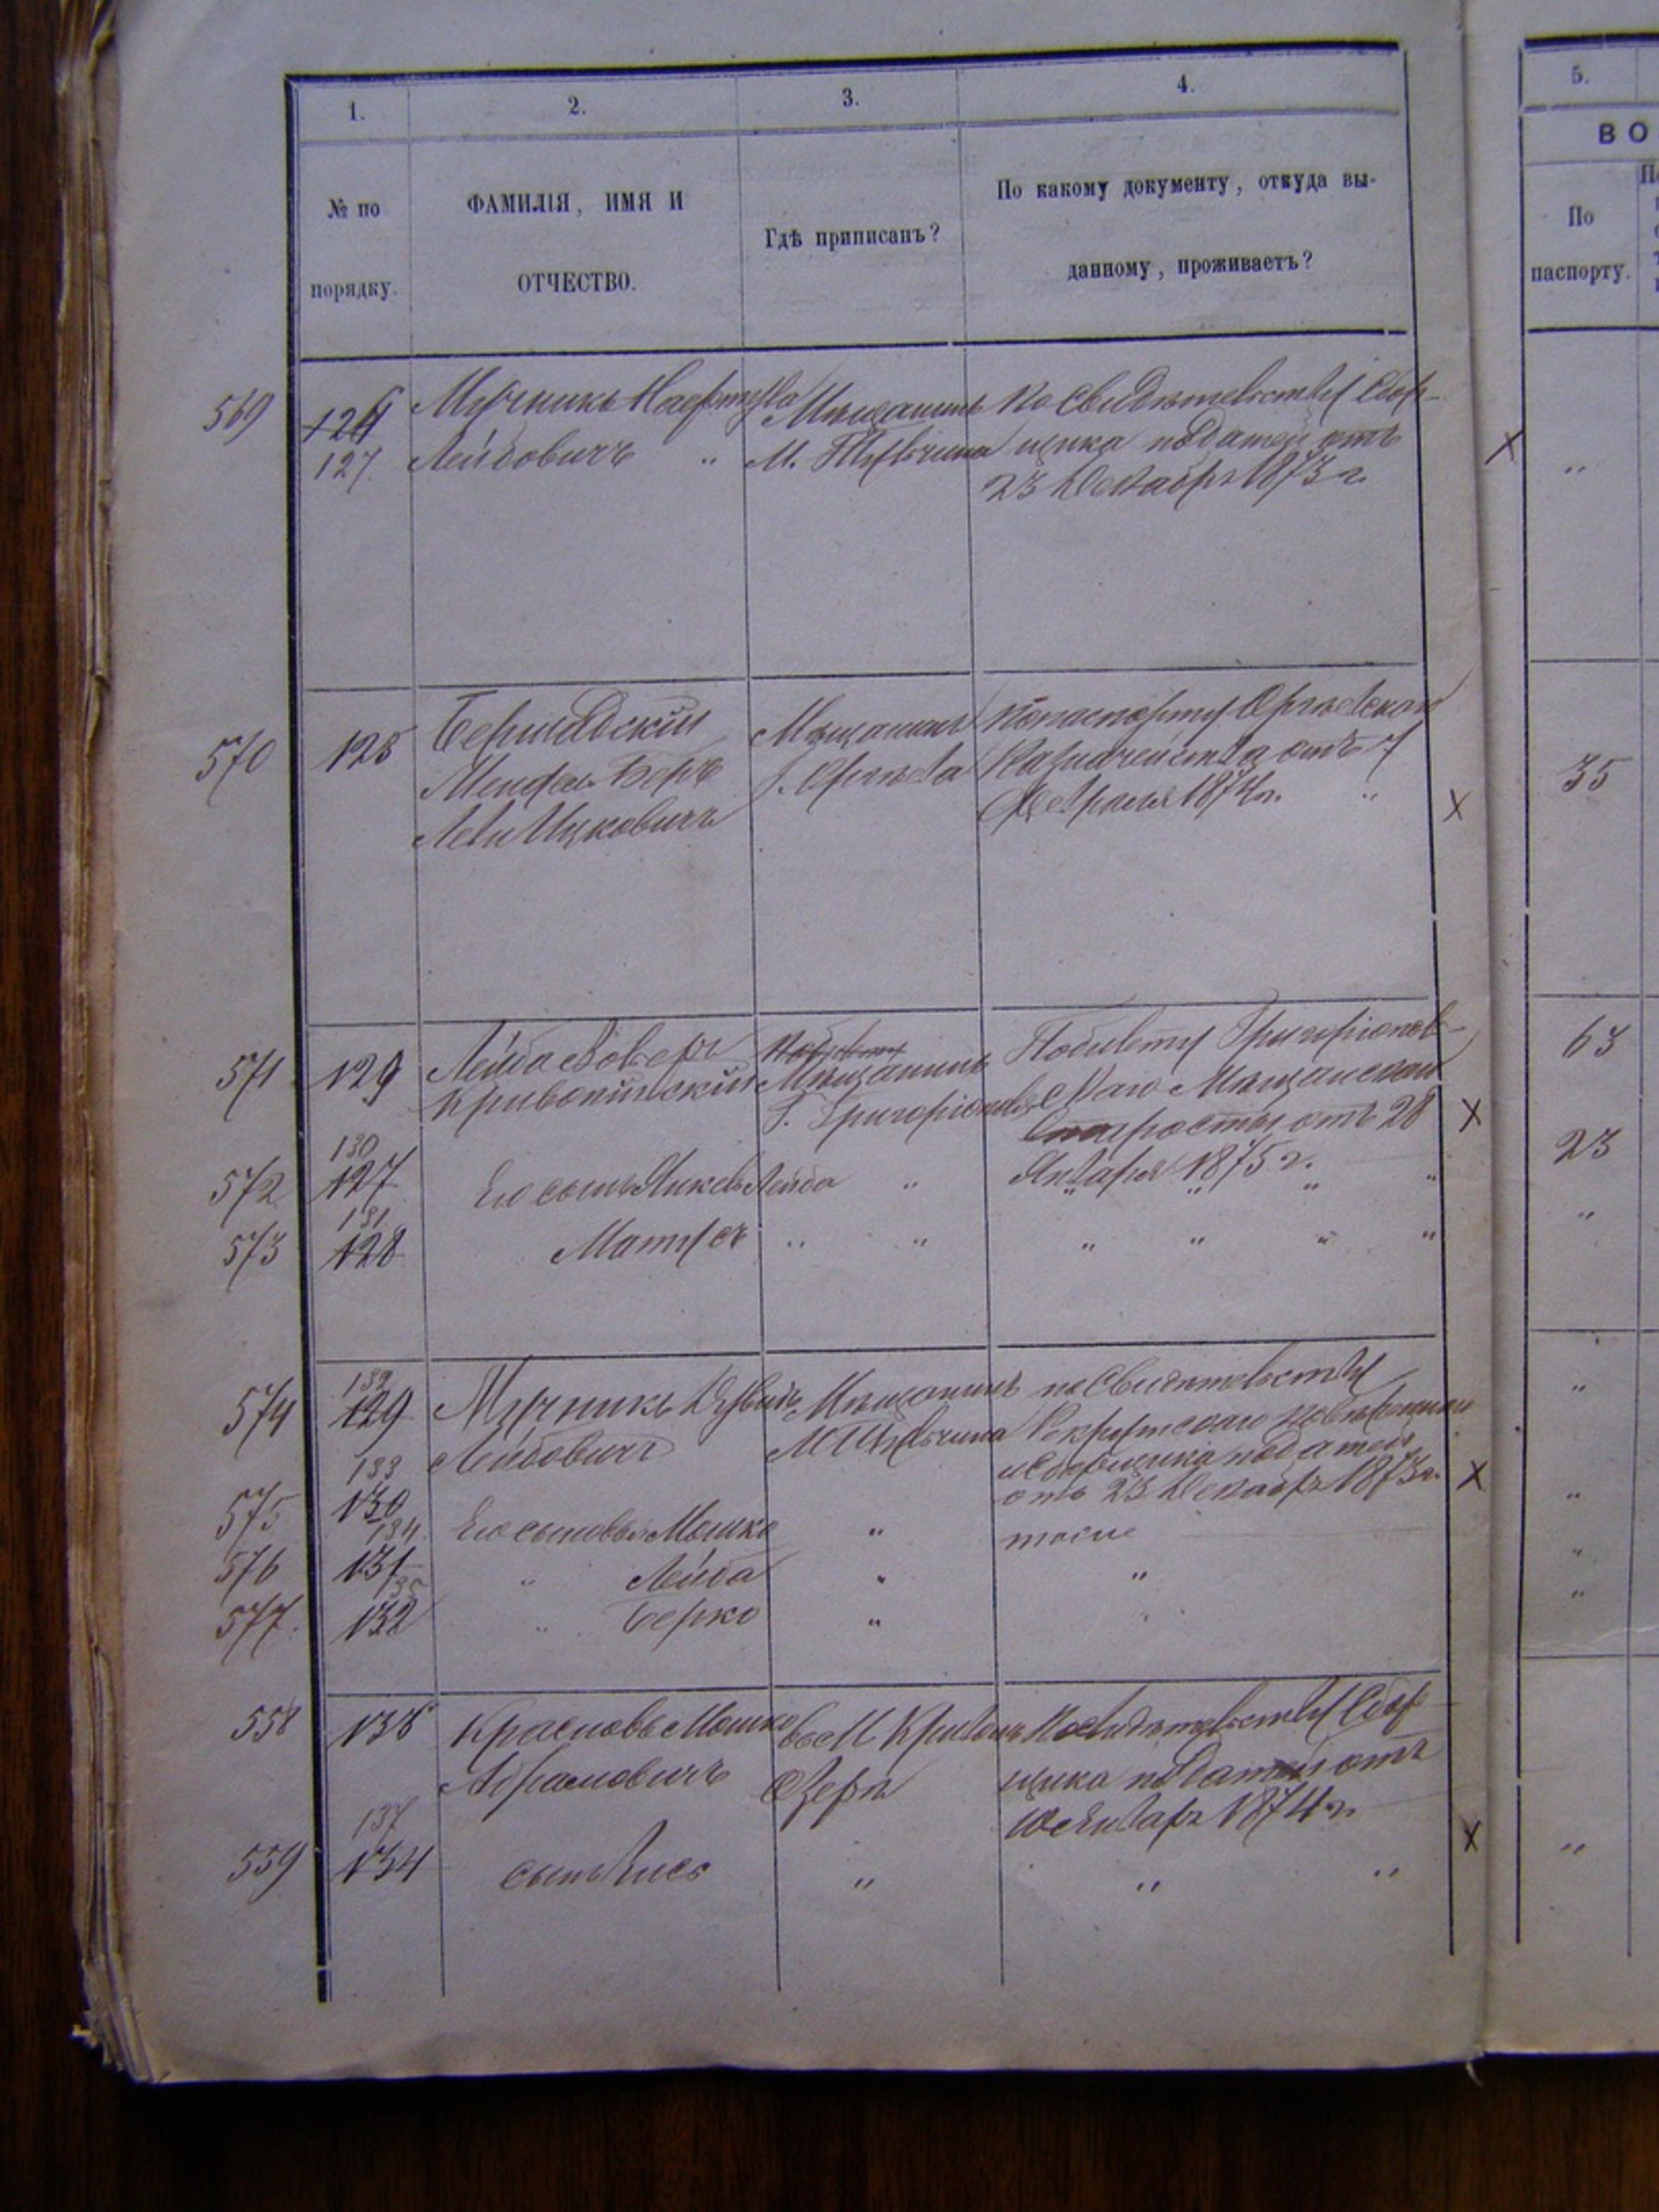 1.
2.
3.
4.
5.
ВО
№ по
порядку.
ФАМИЛІЯ, ИМЯ И
ОТЧЕСТВО.
Гдѣ приписанъ?
По какому документу, откуда вы-
данному, проживаетъ?
По
паспорту.
569
127
Мучникъ
Лейбовичъ "
Мѣщанинъ
М.
По Свидѣтельству Сбор-
щика податей отъ
23 Декабря 1873 г.
X
"
570
128
Бериладскій
Мендель Беръ
Лейицковичъ
Мѣщанинъ
г. Оргѣева
По паспорту Оргѣевскаго
Казначейства отъ 7
Февраля 1874 г. "
X
35
571
129
Лейба
Мѣщанинъ
Г.
По билету Григоріопол-
скаго Мѣщанскаго
Старосты отъ 28
Января 1875 г.
X
63
572
130
127
Его сынъ Янкель Лейба "
" " " "
23
573
131
128
Матусъ " "
" " " "
"
574
132
129
Мучникъ
Лейбовичъ
Мѣщанинъ
М.
по Свидѣтельству
Рекрутскаго
и Сборщика податей
отъ 23 Декабря 1873 г.
X
"
575
133
130
Его сыновья Мошко
"
тоже
"
576
134
131
" Лейба
"
"
"
577.
135
132
" Берко
"
"
558
136
Красновъ Мошко
Абрамовичъ
М. Кривомъ
Озерѣ
По свидѣтельству Сбор
щика податей отъ
10 Января 1874 г.
559
137
134
сынъ
"
" "
X
"